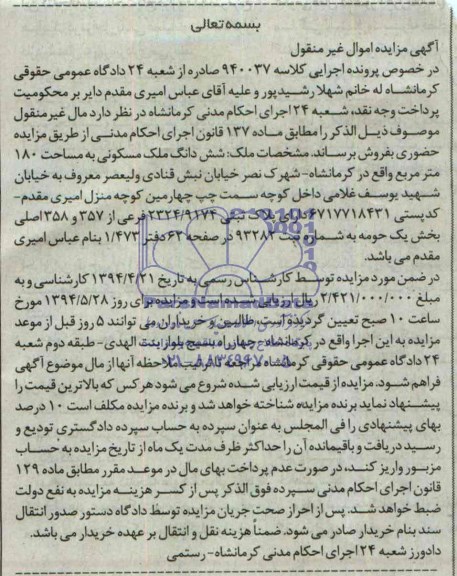 بسمه تعالی
آگهی مزایده اموال غیر منقول
در خصوص پرونده اجرایی کلاسه ۹۴۰۰۳۷ صادره از شعبه ۲۴ دادگاه عمومی حقوقی
کرمانشاه له خانم شهلا رشیدپور و علیه آقای عباس امیری مقدم دایر بر محکومیت
پرداخت وجه نقد، شعبه ۲۴ اجرای احکام مدنی کرمانشاه در نظر دارد مال غیر منقول
موصوف ذیل الذکر را مطابق ماده ۱۳۷ قانون اجرای احکام مدنی از طریق مزایده
حضوری بفروش برساند. مشخصات ملک: شش دانگ ملک مسکونی به مساحت ۱۸۰
متر مربع واقع در کرمانشاه- شهرک نصر خیابان نبش قنادی ولیعصر معروف به خیابان
شهید یوسف غلامی داخل کوچه سمت چپ چهارمین کوچه منزل امیری مقدم-
کدپستی ۶۷۱۷۷۱۸۴۳۱ دارای پلاک ثبتی ۲۳۲۴/۹۱۷۴ فرعی از ۳۵۷ و ۳۵۸ اصلی
بخش یک حومه به شماره ثبت ۹۳۲۸۲ در صفحه ۶۳ دفتر ۱/۴۷۳ بنام عباس امیری
مقدم می باشد.
در ضمن مورد مزایده توسط کارشناس رسمی به تاریخ ۱۳۹۴/۴/۲۱ کارشناسی و به
مبلغ ۲/۴۲۱/۰۰۰/۰۰۰ ریال ارزیابی شده است و مزایده برای روز ۱۳۹۴/۵/۲۸ مورخ
ساعت ۱۰ صبح تعیین گردیده است. طالبین و خریداران می توانند ۵ روز قبل از موعد
مزایده به این اجرا واقع در کرمانشاه- چهارراه بسیج بلوار بنت الهدی- طبقه دوم شعبه
۲۴ دادگاه عمومی حقوقی کرمانشاه مراجعه تا ترتیب ملاحظه آنها از مال موضوع آگهی
فراهم شود. مزایده از قیمت ارزیابی شده شروع می شود هر کس که بالاترین قیمت را
پیشنهاد نماید برنده مزایده شناخته خواهد شد و برنده مزایده مکلف است ۱۰ درصد
بهای پیشنهادی را فی المجلس به عنوان سپرده به حساب سپرده دادگستری تودیع و
رسید دریافت و باقیمانده آن را حداکثر ظرف مدت یک ماه از تاریخ مزایده به حساب
مزبور واریز کنند، در صورت عدم پرداخت بهای مال در موعد مقرر مطابق ماده ۱۲۹
قانون اجرای احکام مدنی سپرده فوق الذکر پس از کسر هزینه مزایده به نفع دولت
ضبط خواهد شد. پس از احراز صحت جریان مزایده توسط دادگاه دستور صدور انتقال
سند بنام خریدار صادر می شود. ضمناً هزینه نقل و انتقال بر عهده خریدار می باشد.
دادورز شعبه ۲۴ اجرای احکام مدنی کرمانشاه- رستمی